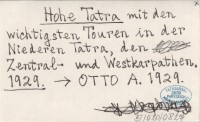 Hohe Tatra mit den
wichtigsten Touren in der
Niederen Tatra, den
Zentral- und Westkarpathen.
1929. → OTTO A. 1929.